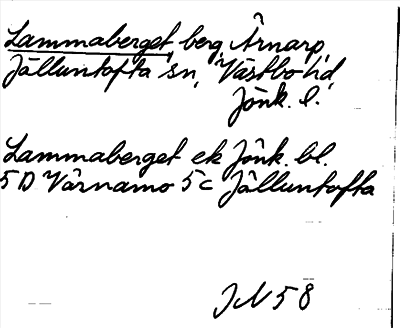 Lammaberget, berg, Årnarp,
Jälluntofta sn, Västbo hd,
Jönk. l.
Lammaberget ek Jönk. bl.
5D Värnamo 5c Jälluntofta
JN 58